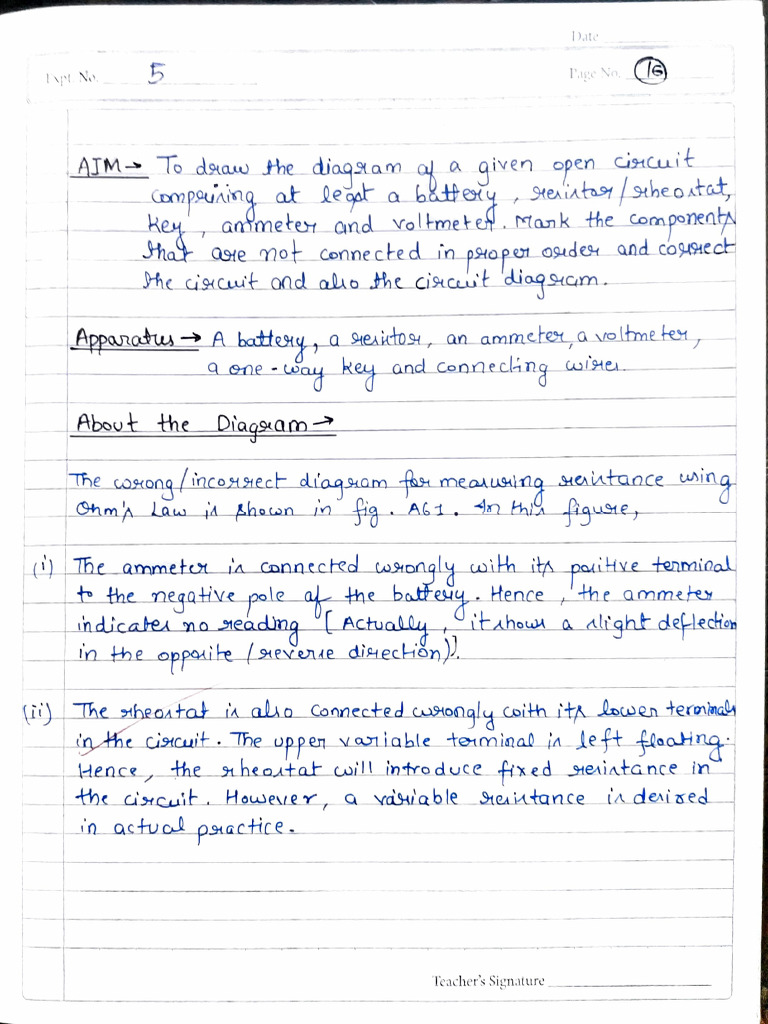 Date
Expt. No. 5
Page No. 16
AIM → To draw the diagram of a given open circuit
comprising at least a battery, resistor/rheostat,
key, ammeter and voltmeter. Mark the components
that are not connected in proper order and correct
the circuit and also the circuit diagram.
Apparatus → A battery, a resistor, an ammeter, a voltmeter,
a one-way key and connecting wires.
About the Diagram →
The wrong/incorrect diagram for measuring resistance using
Ohm's Law is shown in fig. A61. In this figure,
(i) The ammeter is connected wrongly with its positive terminal
to the negative pole of the battery. Hence, the ammeter
indicates no reading [Actually, it shows a slight deflection
in the opposite (reverse direction)].
(ii) The rheostat is also connected wrongly with its lower terminals
in the circuit. The upper variable terminal is left floating.
Hence, the rheostat will introduce fixed resistance in
the circuit. However, a variable resistance is desired
in actual practice.
Teacher's Signature